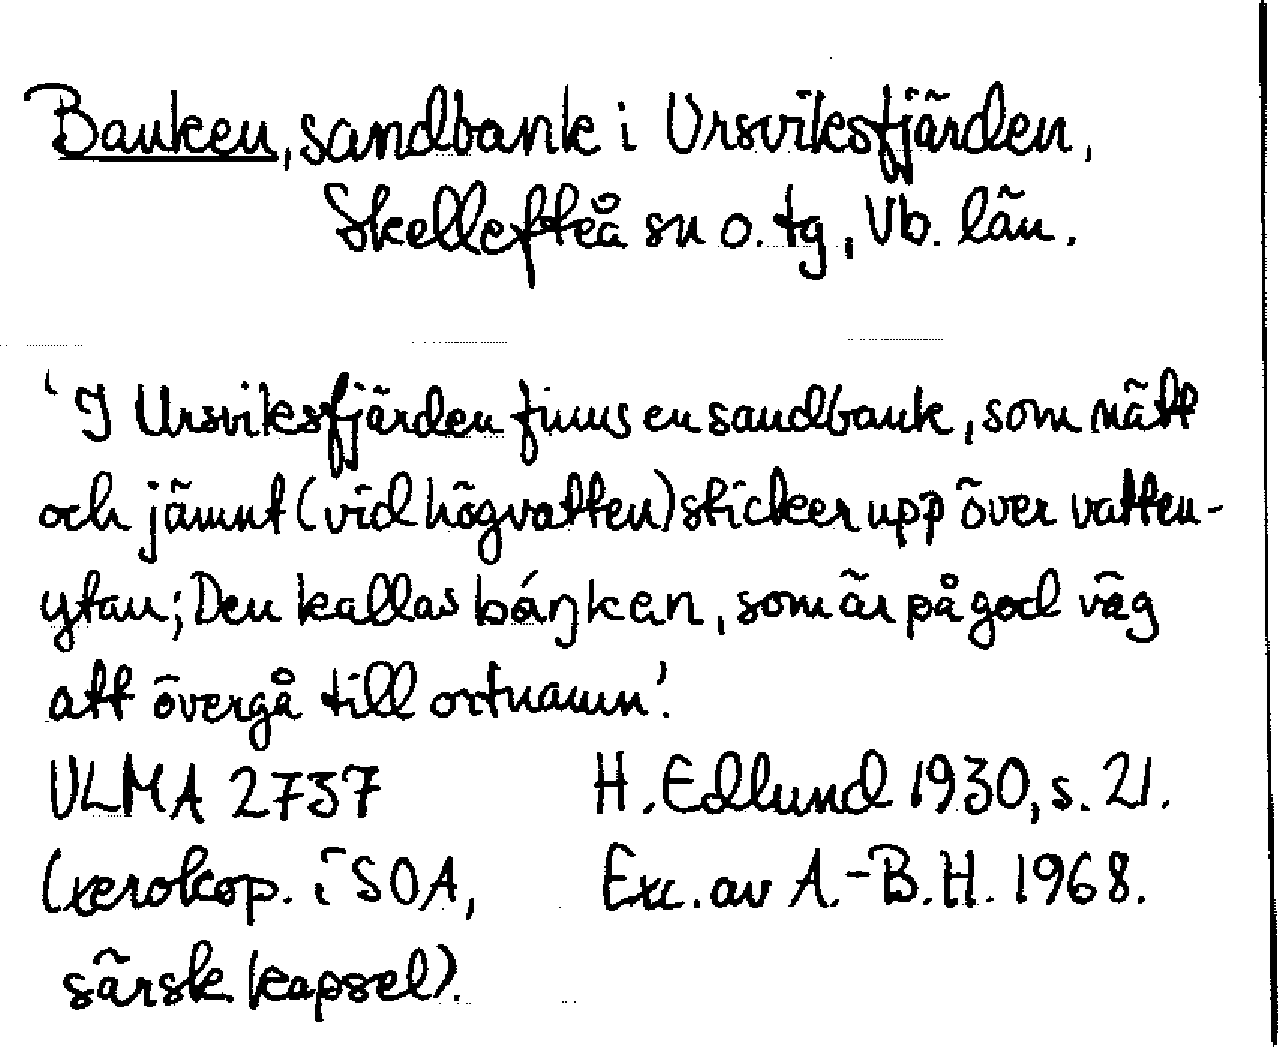 Banken, sandbank i Ursviksfjärden,
Skellefteå sn o. tg, Vb. län.
'I Ursviksfjärden finns en sandbank, som nätt
och jämnt (vid högvatten) sticker upp över vatten-
ytan; Den kallas báŋkan, som är på god väg
att övergå till ortnamn'.
ULMA 2737 H. Edlund 1930, s. 21.
(xerokop. i SOA, Exc. av A.-B.H. 1968.
särsk. kapsel).